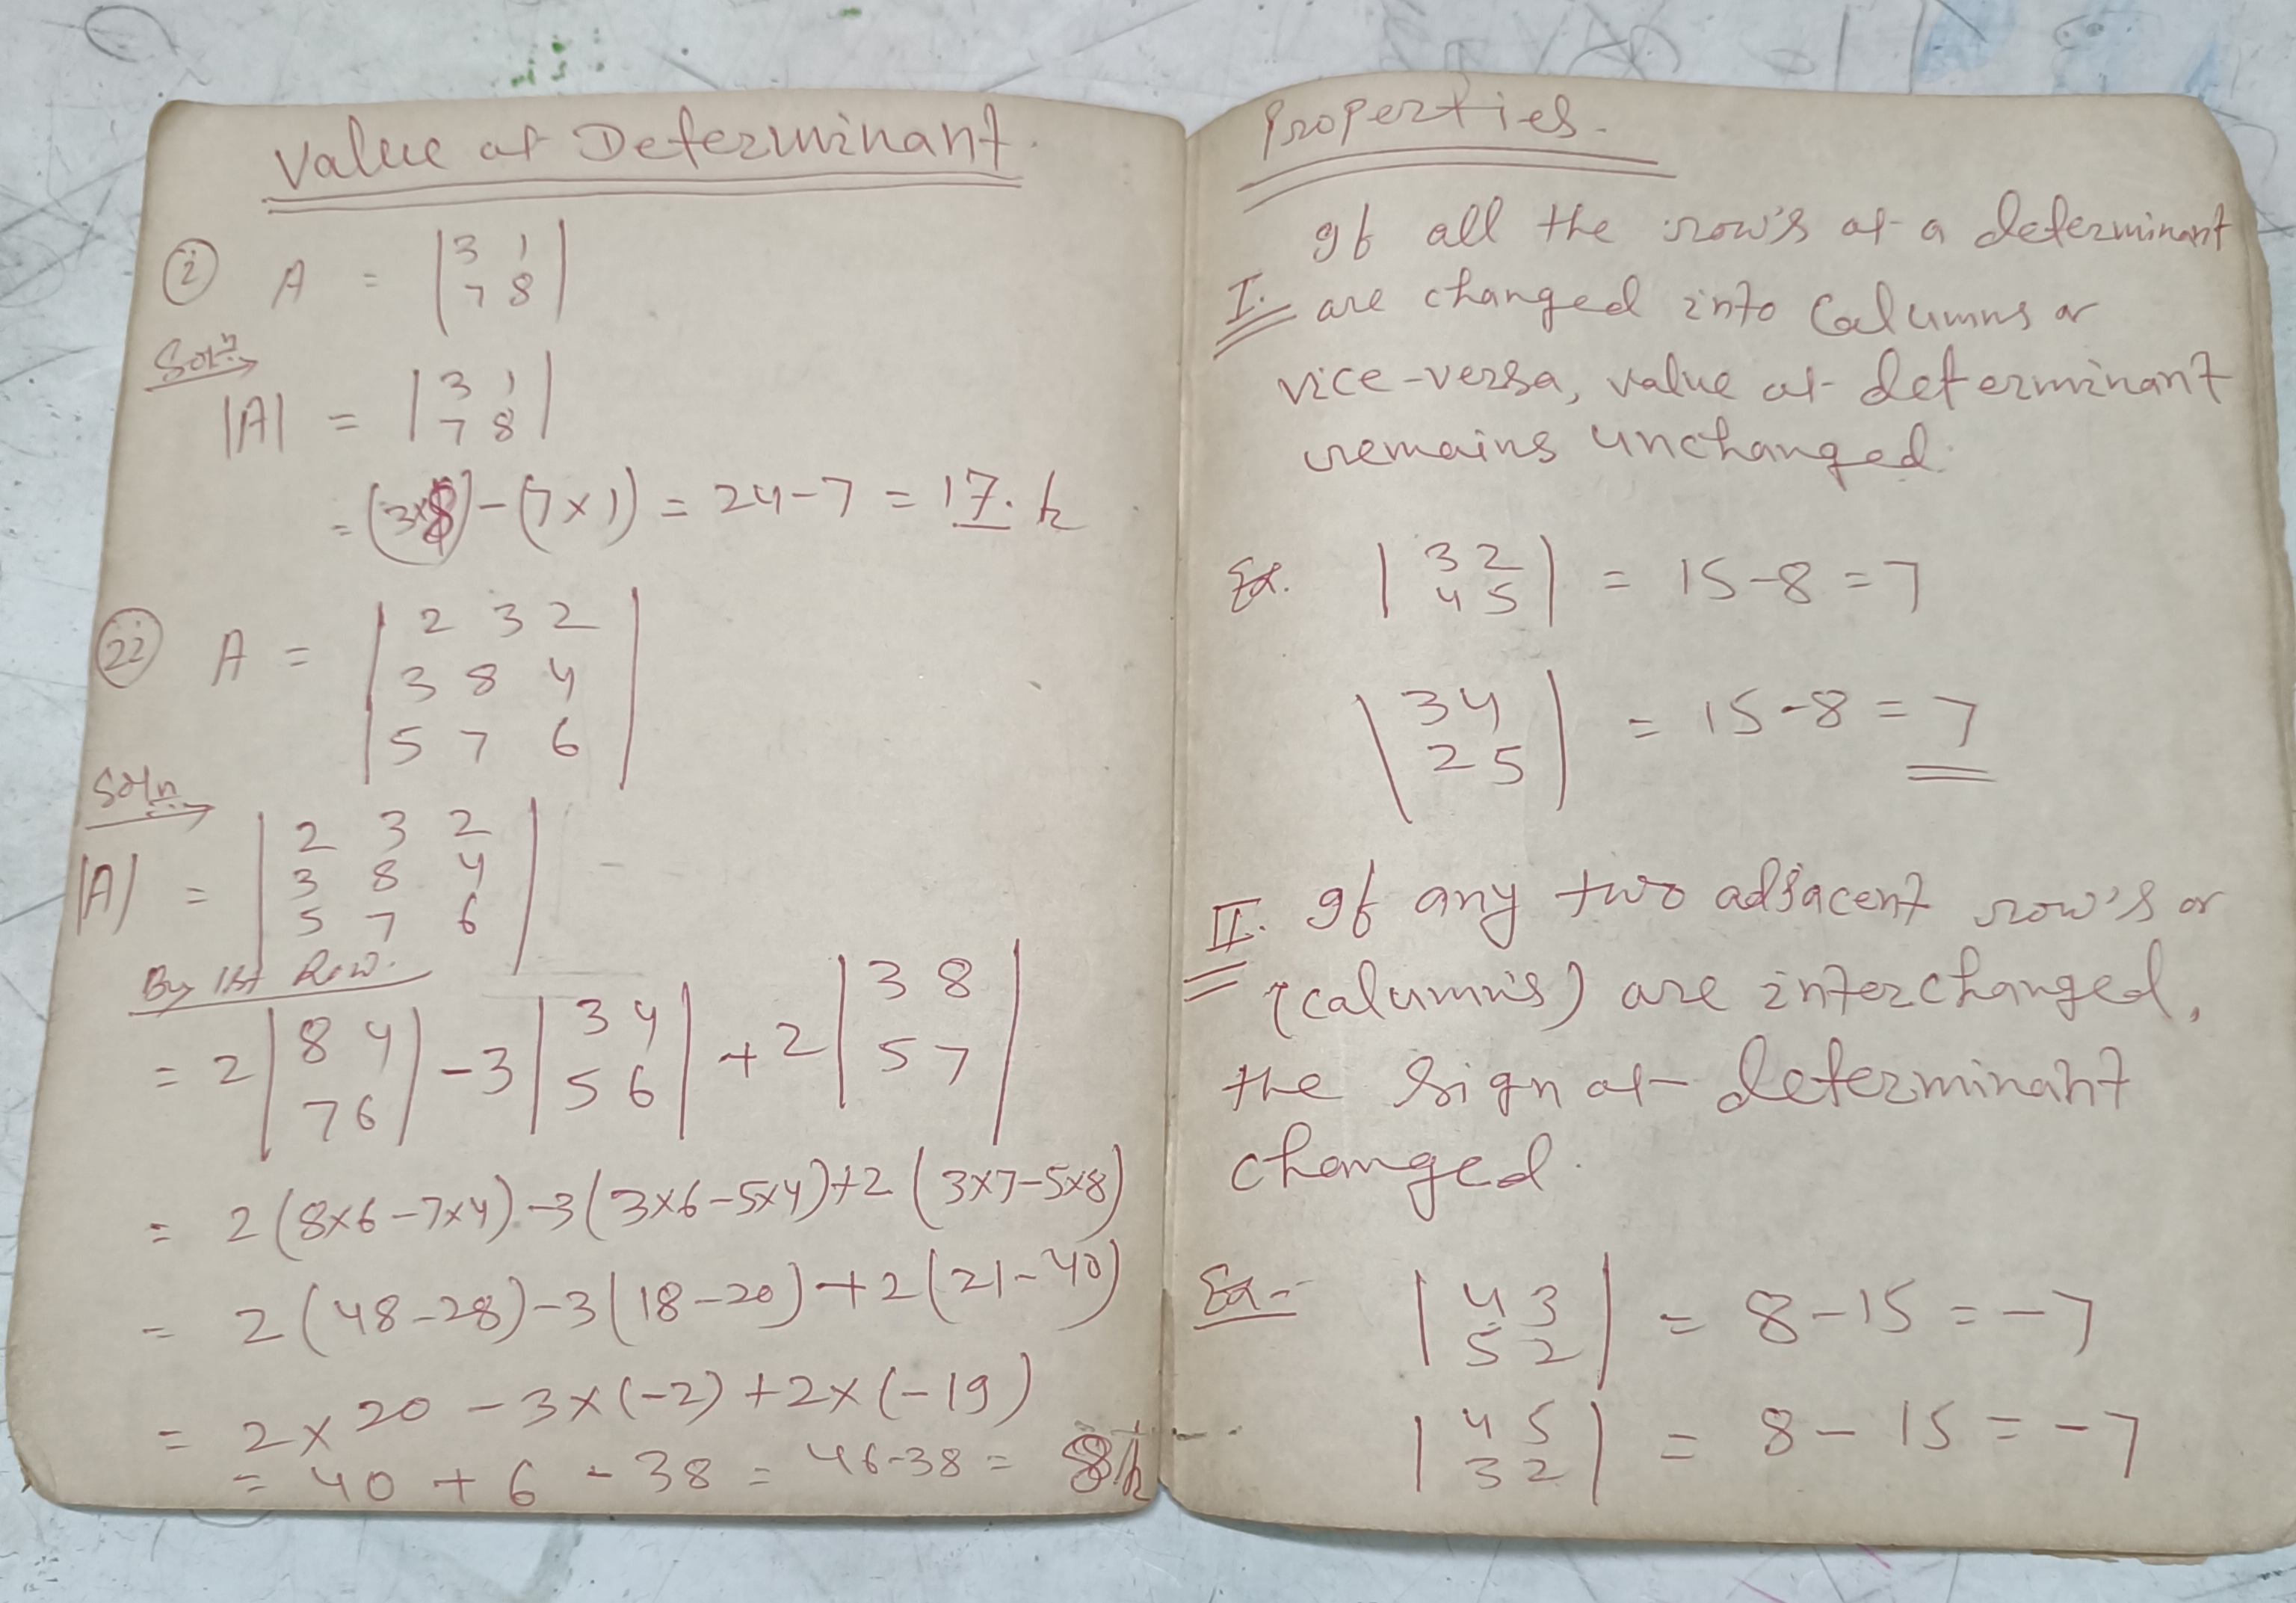 Value of Determinant.
(i) A = |3 1|
|7 8|
Soln→
|A| = |3 1|
|7 8|
= (3×8) - (7×1) = 24-7 = 17.
(ii) A = |2 3 2|
|3 8 4|
|5 7 6|
Soln→
|A| = |2 3 2|
|3 8 4|
|5 7 6|
By 1st Row.
= 2 |8 4| -3 |3 4| +2 |3 8|
|7 6| |5 6| |5 7|
= 2(8×6-7×4)-3(3×6-5×4)+2(3×7-5×8)
= 2(48-28)-3(18-20)+2(21-40)
= 2×20 -3×(-2)+2×(-19)
= 40 + 6 - 38 = 46-38 = 8
Properties.
If all the row's of a determinant
I. are changed into Columns or
vice-versa, value of determinant
remains unchanged.
Ex. |3 2| = 15-8=7
|4 5|
|3 4| = 15-8=7
|2 5|
II. If any two adjacent row's or
(column's) are interchanged,
the sign of determinant
changed.
Ex- |4 3| = 8-15=-7
|5 2|
|4 5| = 8-15=-7
|3 2|